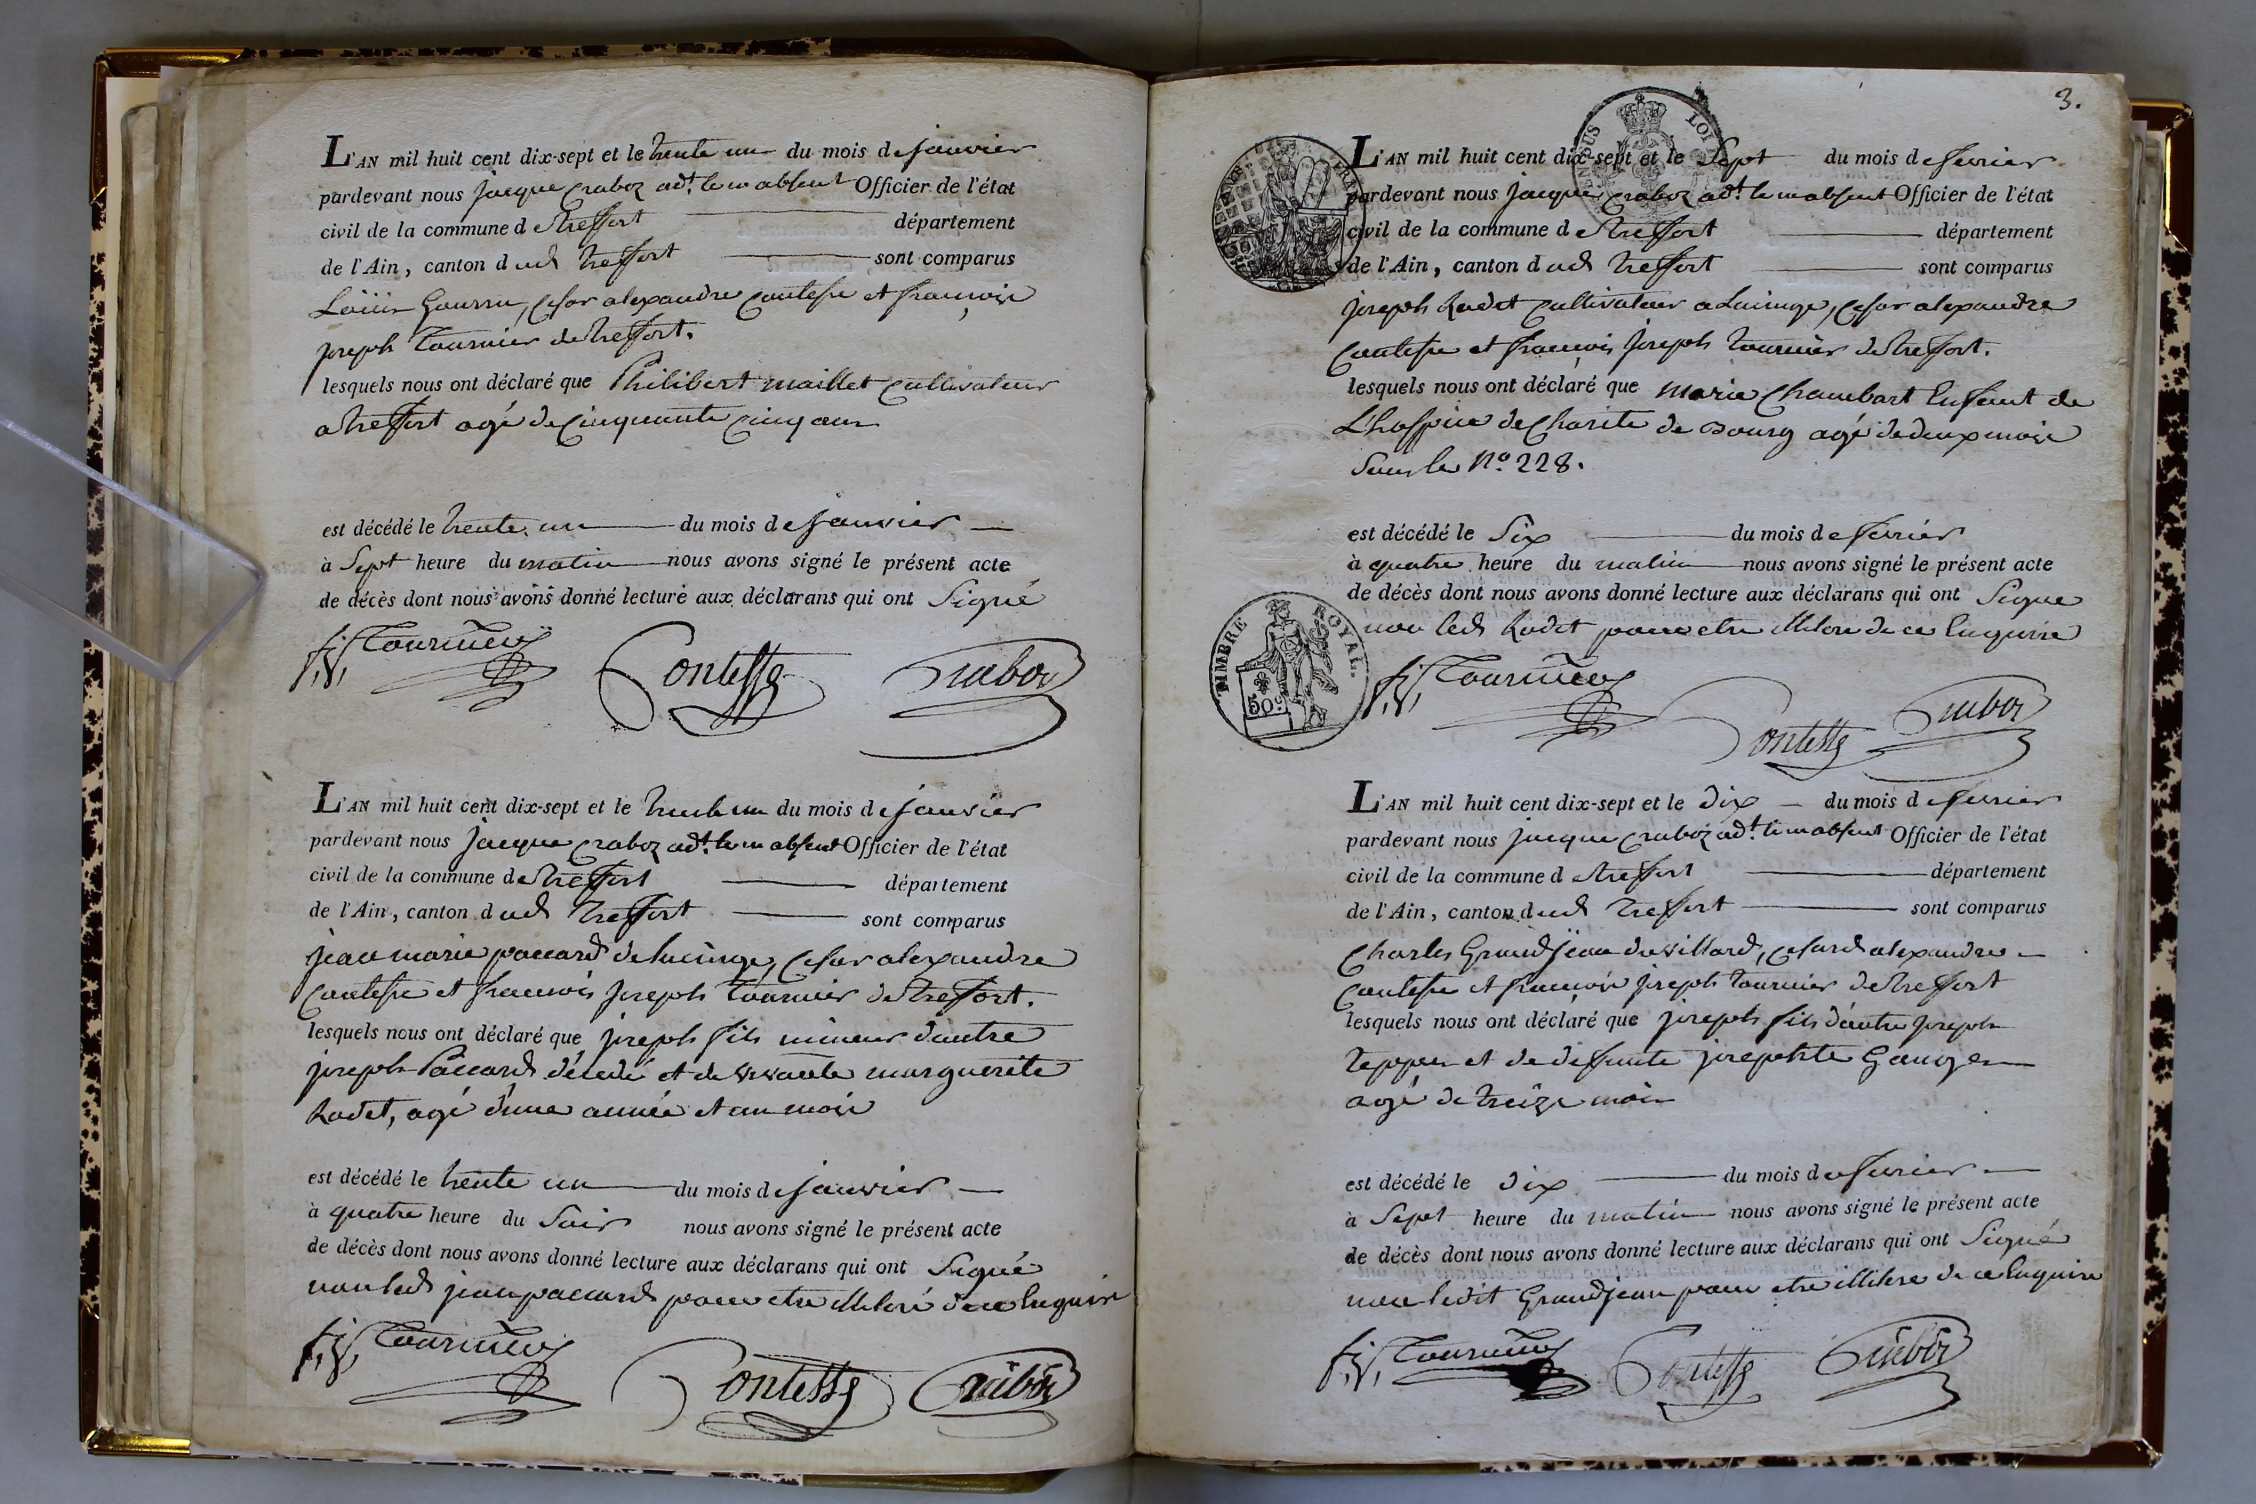 L'AN mil huit cent dix-sept et le trente un du mois de janvier
pardevant nous jacque Craboz adt. le m absent Officier de l'état
civil de la commune de treffort département
de l'Ain, canton dud treffort sont comparus
Gourru, Cesar alexandre Contesse et françois
joseph tournier de treffort.
lesquels nous ont déclaré que Philibert maillet cultivateur
a treffort agé de Cinquante Cinq ans
est décédé le trente un du mois de janvier
à Sept heure du matin nous avons signé le présent acte
de décès dont nous avons donné lecture aux déclarans qui ont Signé
f. j. Tournier Contesse Craboz
L'AN mil huit cent dix-sept et le trente un du mois de janvier
pardevant nous jacque Craboz adt. le m absent Officier de l'état
civil de la commune de treffort département
de l'Ain, canton dud treffort sont comparus
jean marie paccard de lucinge, Cesar alexandre
Contesse et françois joseph tournier de treffort.
lesquels nous ont déclaré que joseph fils mineur d'autre
joseph Paccard décédé et de vivante marguerite
Rodet, agé d'une année et un mois
est décédé le trente un du mois de janvier
à quatre heure du Soir nous avons signé le présent acte
de décès dont nous avons donné lecture aux déclarans qui ont Signé
non led jean paccard pour etre illiteré de ce Enquire
f. j. Tournier Contesse Craboz
3.
L'AN mil huit cent dix-sept et le Sept du mois de fevrier
pardevant nous jacque Craboz adt. le m absent Officier de l'état
civil de la commune de treffort département
de l'Ain, canton dud treffort sont comparus
joseph Rodet Cultivateur a Lucinge, Cesar alexandre
Contesse et francois joseph tournier de treffort.
lesquels nous ont déclaré que marie Chambart Enfant de
Lhospice de Charite de Bourg agé de deux mois
Sous le No. 228.
est décédé le Six du mois de fevrier
à quatre heure du matin nous avons signé le présent acte
de décès dont nous avons donné lecture aux déclarans qui ont Signe
non led Rodet pour etre illitere de ce Enquire
TIMBRE ROYAL.
50c.
f. j. Tournier Contesse Craboz
L'AN mil huit cent dix-sept et le dix du mois de fevrier
pardevant nous jacque Craboz adt. le m absent Officier de l'état
civil de la commune de treffort département
de l'Ain, canton dud treffort sont comparus
Charles Grandjean du villard, Cesard alexandre
Contesse et francois joseph tournier de treffort
lesquels nous ont déclaré que joseph fils d'autre joseph
et de defunte josephte
agé de treize mois
est décédé le dix du mois de fevrier
à Sept heure du matin nous avons signé le présent acte
de décès dont nous avons donné lecture aux déclarans qui ont Signé
non ledit Grandjean pour etre illitere de ce Enquire
f. j. Tournier Contesse Craboz